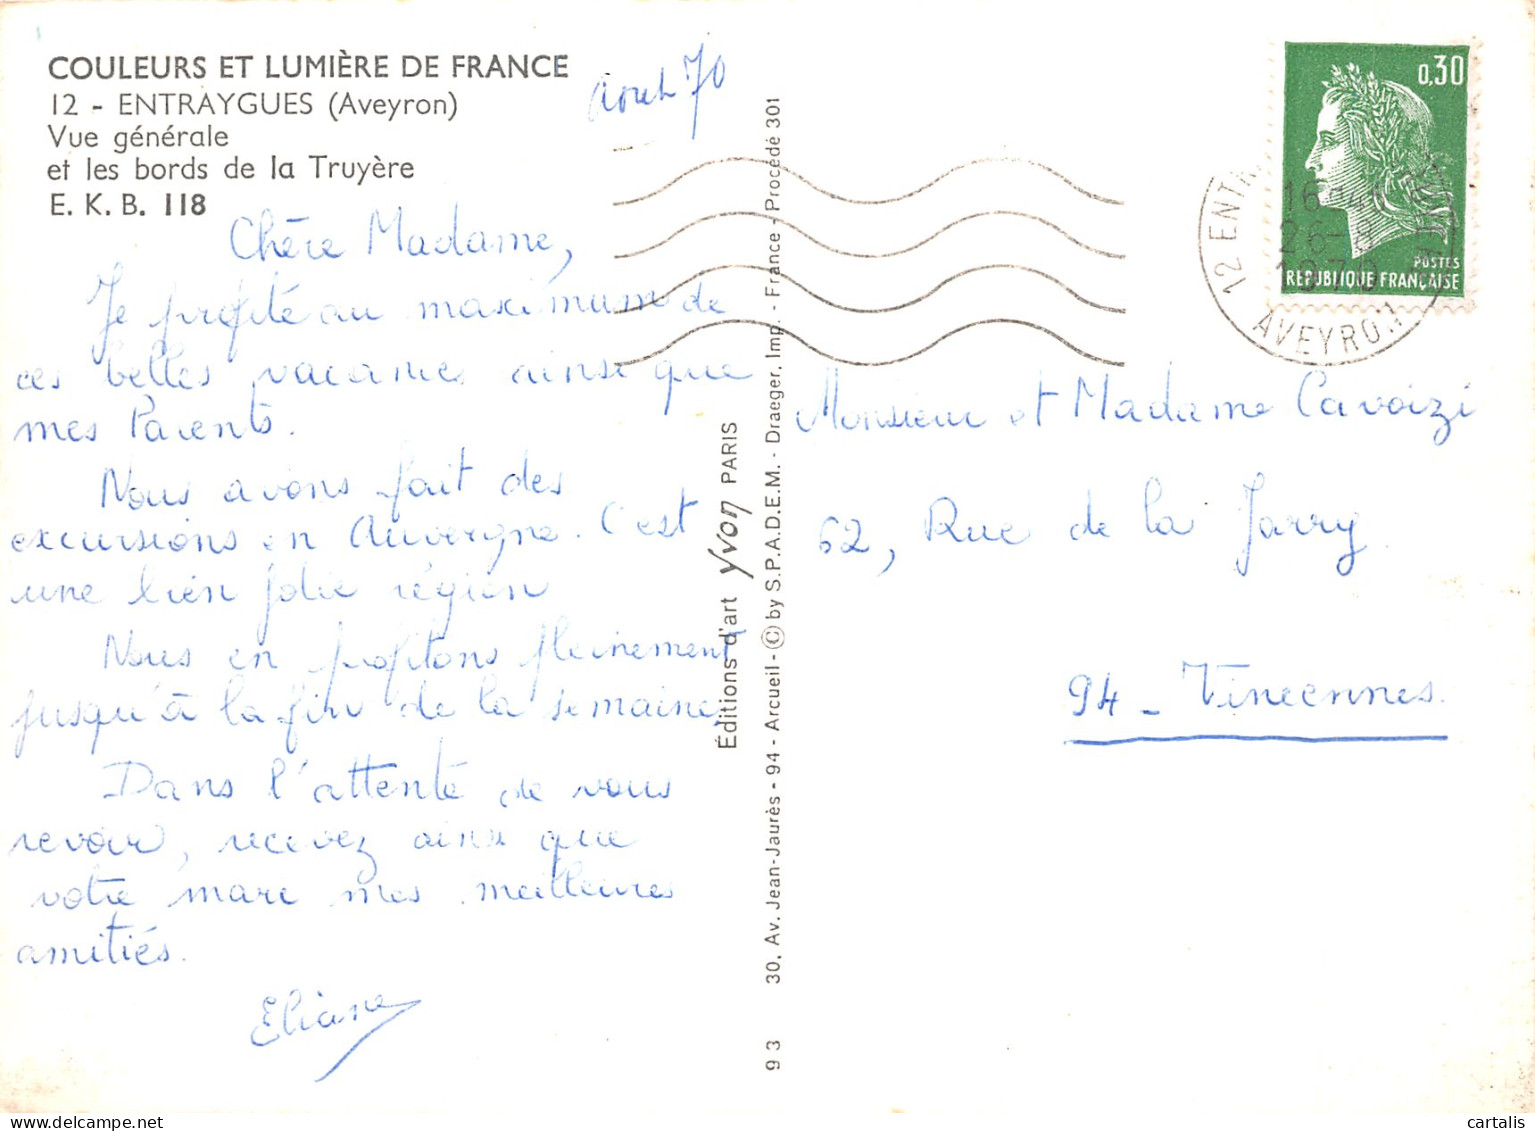 COULEURS ET LUMIÈRE DE FRANCE
12 - ENTRAYGUES (Aveyron)
Vue générale
et les bords de la Truyère
E. K. B. 118
Août 70
Chère Madame,
Je profite au maximum de
ces belles vacances ainsi que
mes Parents.
Nous avons fait des
excursions en Auvergne. C'est
une bien jolie région
Nous en profitons pleinement
jusqu'à la fin de la semaine.
Dans l'attente de vous
revoir, recevez ainsi que
votre mari mes meilleures
amitiés.
Eliane
Éditions d'art Yvon PARIS
93 30, Av. Jean-Jaurès - 94 - Arcueil - © by S.P.A.D.E.M. - Draeger, Imp. - France - Procédé 301
0,30
POSTES
REPUBLIQUE FRANÇAISE
12 ENTR
26-8
1970
AVEYRON
Monsieur et Madame Cavoizi
62, Rue de la Jarry
94 - Vincennes.
cartalis.com